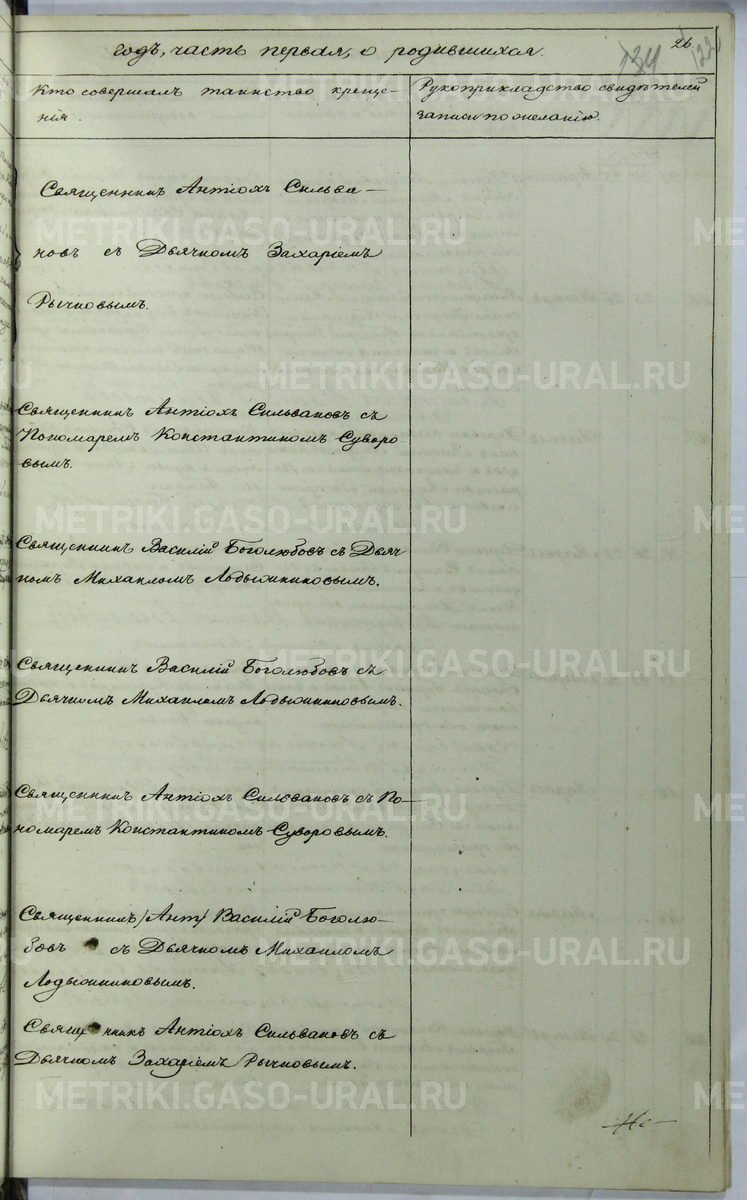 годъ, часть первая, о родившихся.
26
134
122
Кто совершалъ таинство креще-
нія.
Рукоприкладство свидѣтелей
записи по желанію.
Священникъ Антіохъ Сильва-
новъ съ Дьячкомъ Захаріемъ
Рычковымъ.
Священникъ Антіохъ Сильвановъ съ
Пономаремъ Константиномъ Суворо
вымъ.
Священникъ Василій Боголюбовъ съ Дьяч
комъ Михаиломъ Лодыжниковымъ.
Священникъ Василій Боголюбовъ съ
Дьячкомъ Михаиломъ Лодыжниковымъ.
Священникъ Антіохъ Сильвановъ съ По-
номаремъ Константиномъ Суворовымъ.
Священникъ /Ант/ Василій Боголю-
бовъ съ Дьячкомъ Михаиломъ
Лодыжниковымъ.
Священникъ Антіохъ Сильвановъ съ
Дьячкомъ Захаріемъ Рычковымъ.
METRIKI.GASO-URAL.RU